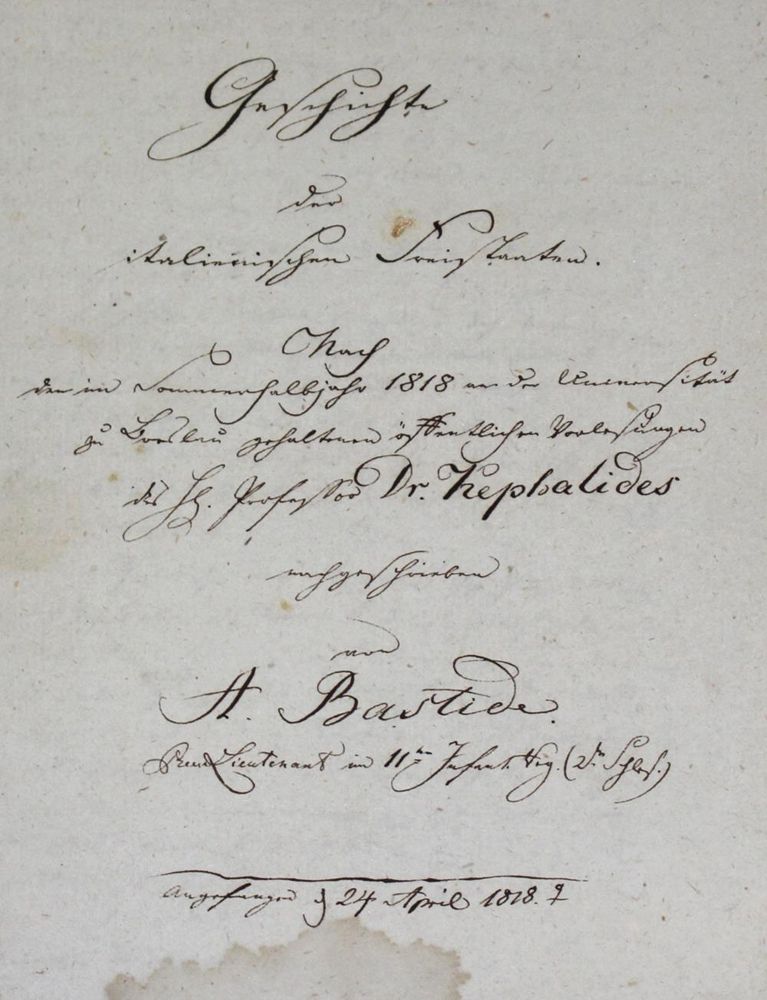 Geschichte
der
italienischen Freistaaten.
Nach
den im Sommerhalbjahr 1818 an der Universität
zu Breslau gehaltenen öffentlichen Vorlesungen
des H. Professor Dr. Kephalides
nachgeschrieben
von
A. Bastide.
Lieutenant im 11ten Infant. Reg. (2n Schles.)
Angefangen d 24 April 1818. ♀